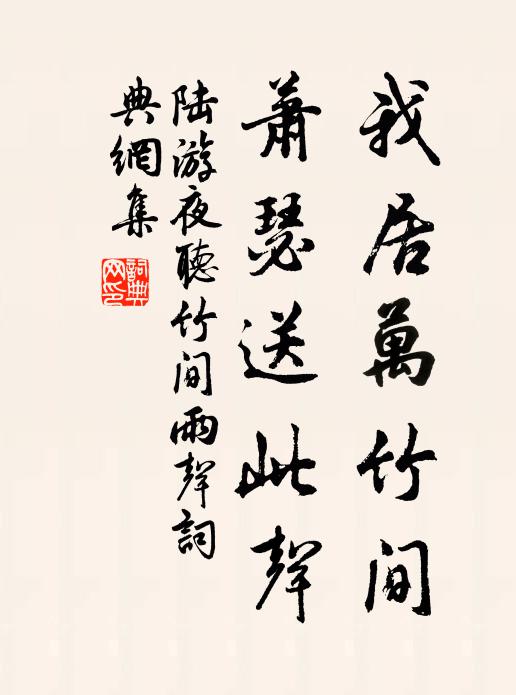 我居萬竹間
蕭瑟送此聲
陸游夜聽竹間雨聲詞
典網集
詞典
网印